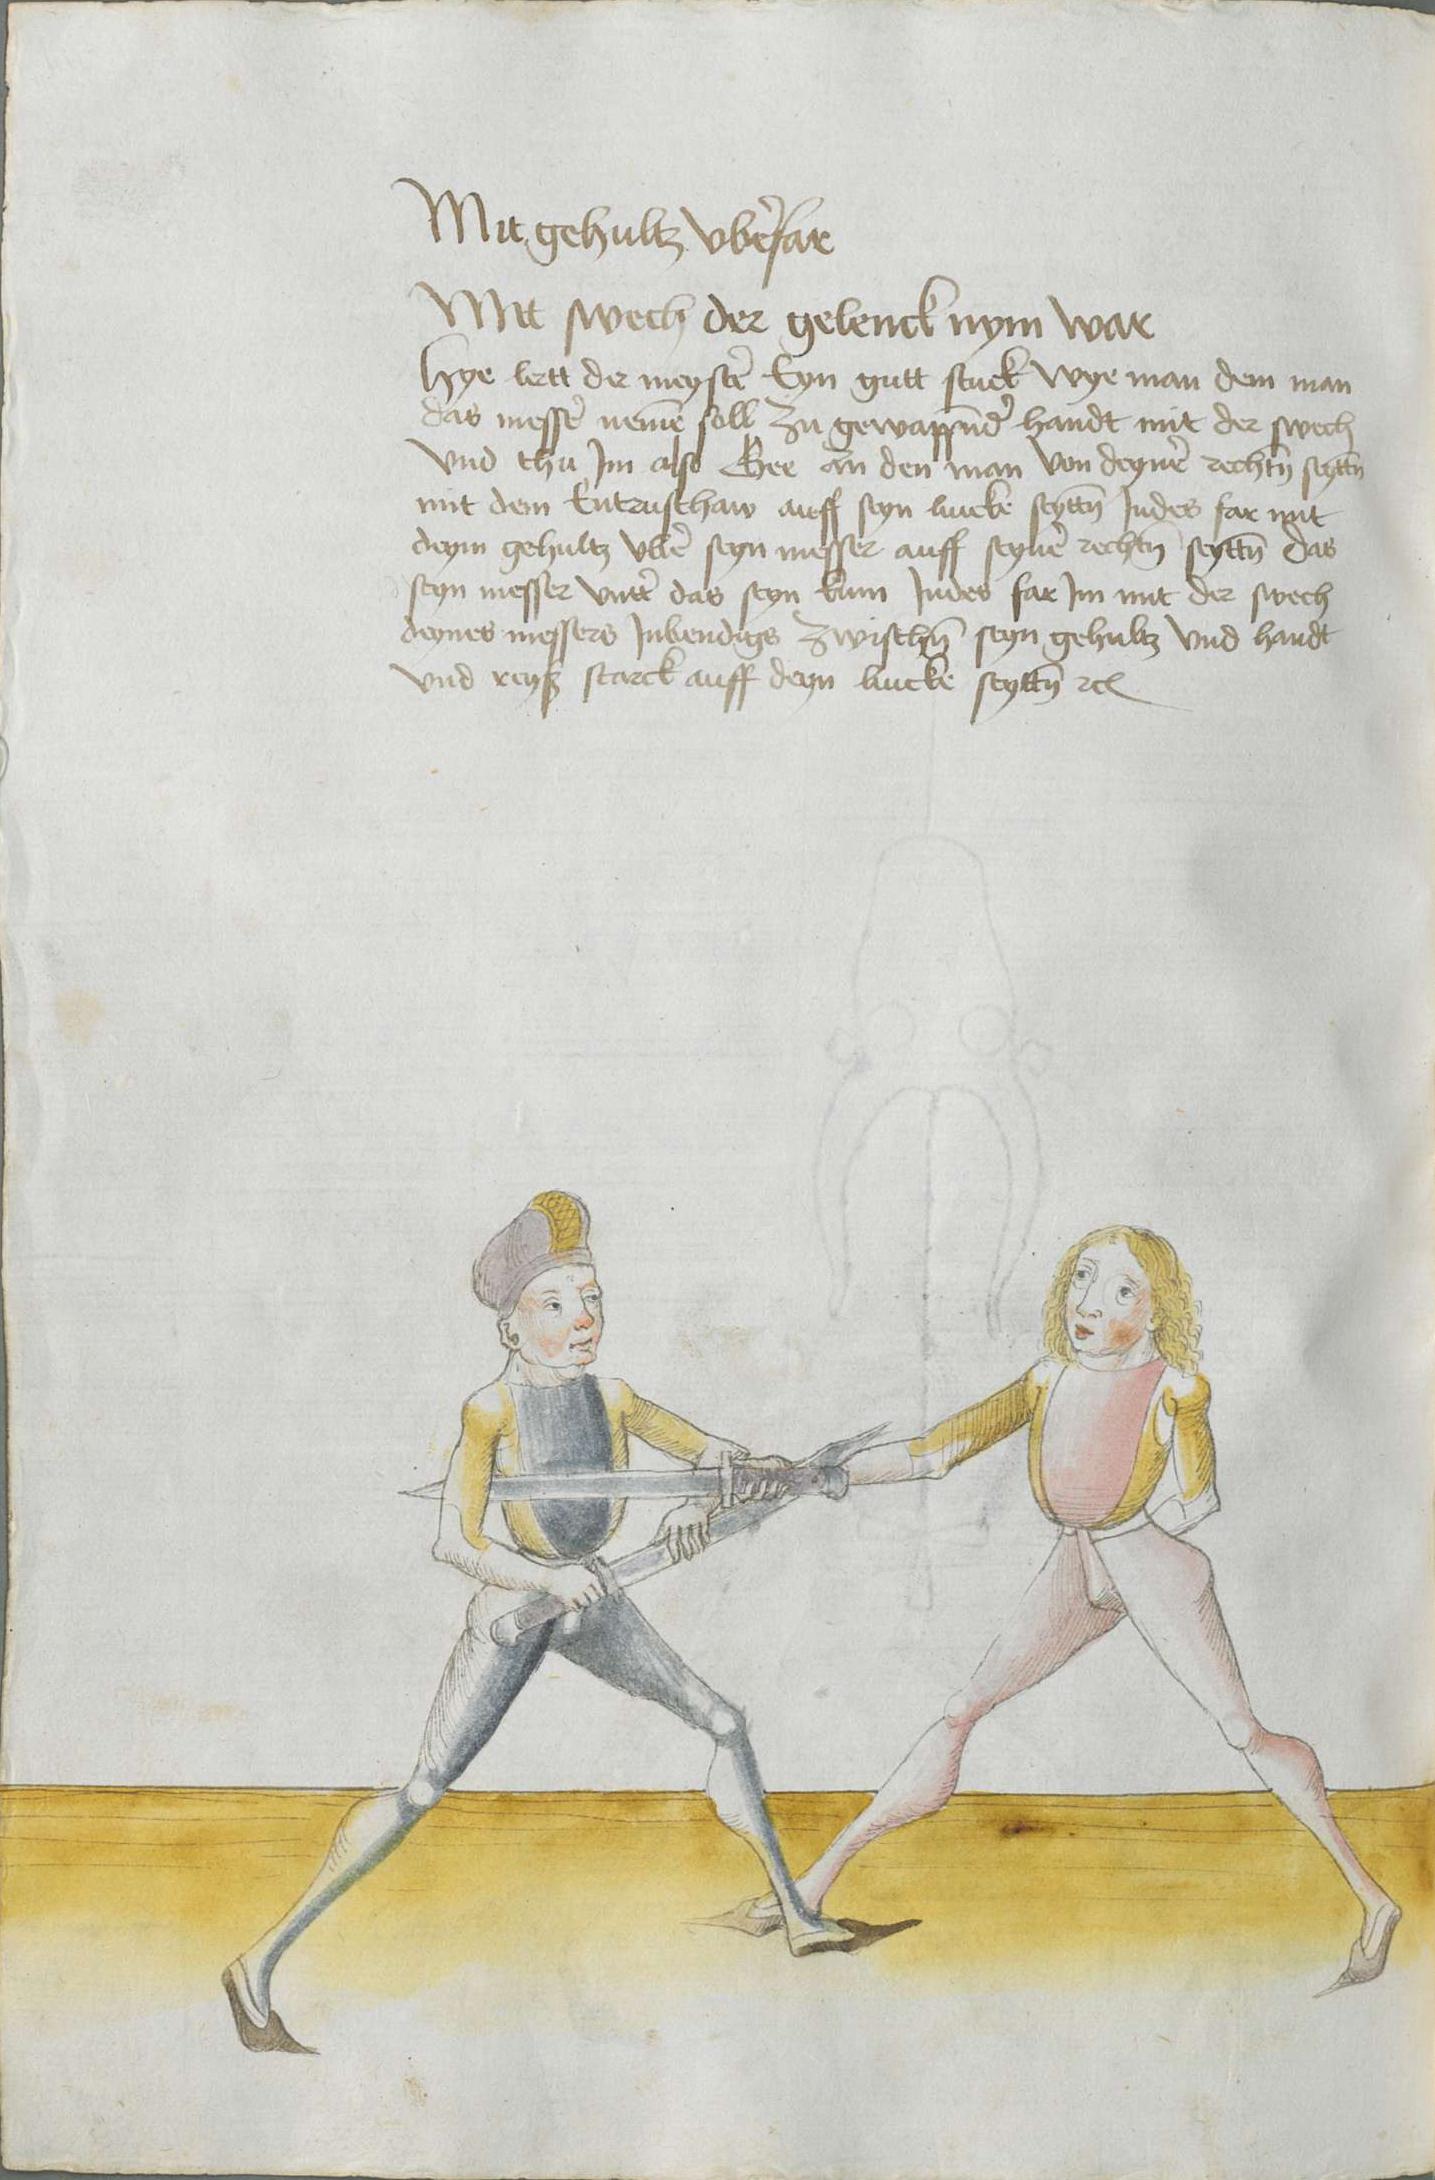 Mit gehultz vber far
Mit swech der gelenck nym war
Hye lertt der meyster Eyn gutt stuck Wye man dem man
das messer neme soll Zu gewappnder handt mit der swech
vnd thu Im also Gee an den man von deyner rechtn seyttn
mit dem Entrusthaw auff seyn lincke seyttn Indes far mit
deym gehultz vber seyn messer auff seyner rechtn seyttn das
seyn messer vntter das seyn kum Indes far Im mit der swech
deynes messers Inbendigs Zwischn seyn gehultz vnd handt
vnd reyß starck auff deyn lincke seyttn rc